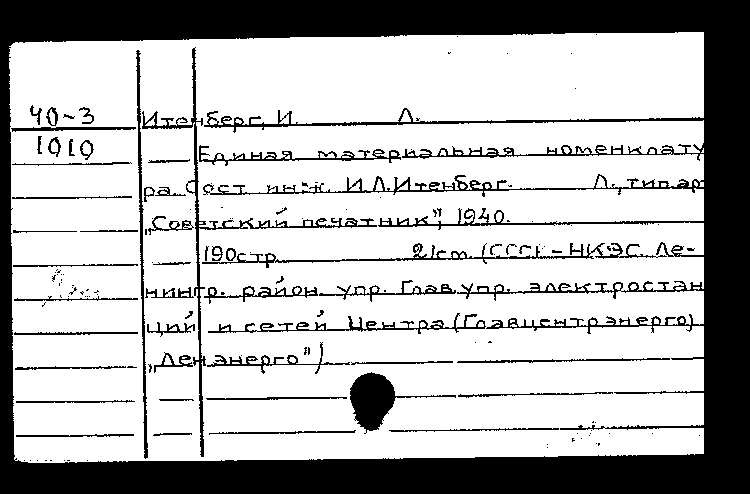 40-3 Итенберг, И. Л.
1010 Единая материальная номенклату
ра. Сост. инж. И.Л.Итенберг. Л., тип.арт
„Советский печатник", 1940.
190стр. 21см. (СССР - НКЭС. Ле-
нингр. район. упр. Глав.упр. электростан
ций и сетей Центра (Главцентрэнерго)
„Ленэнерго")